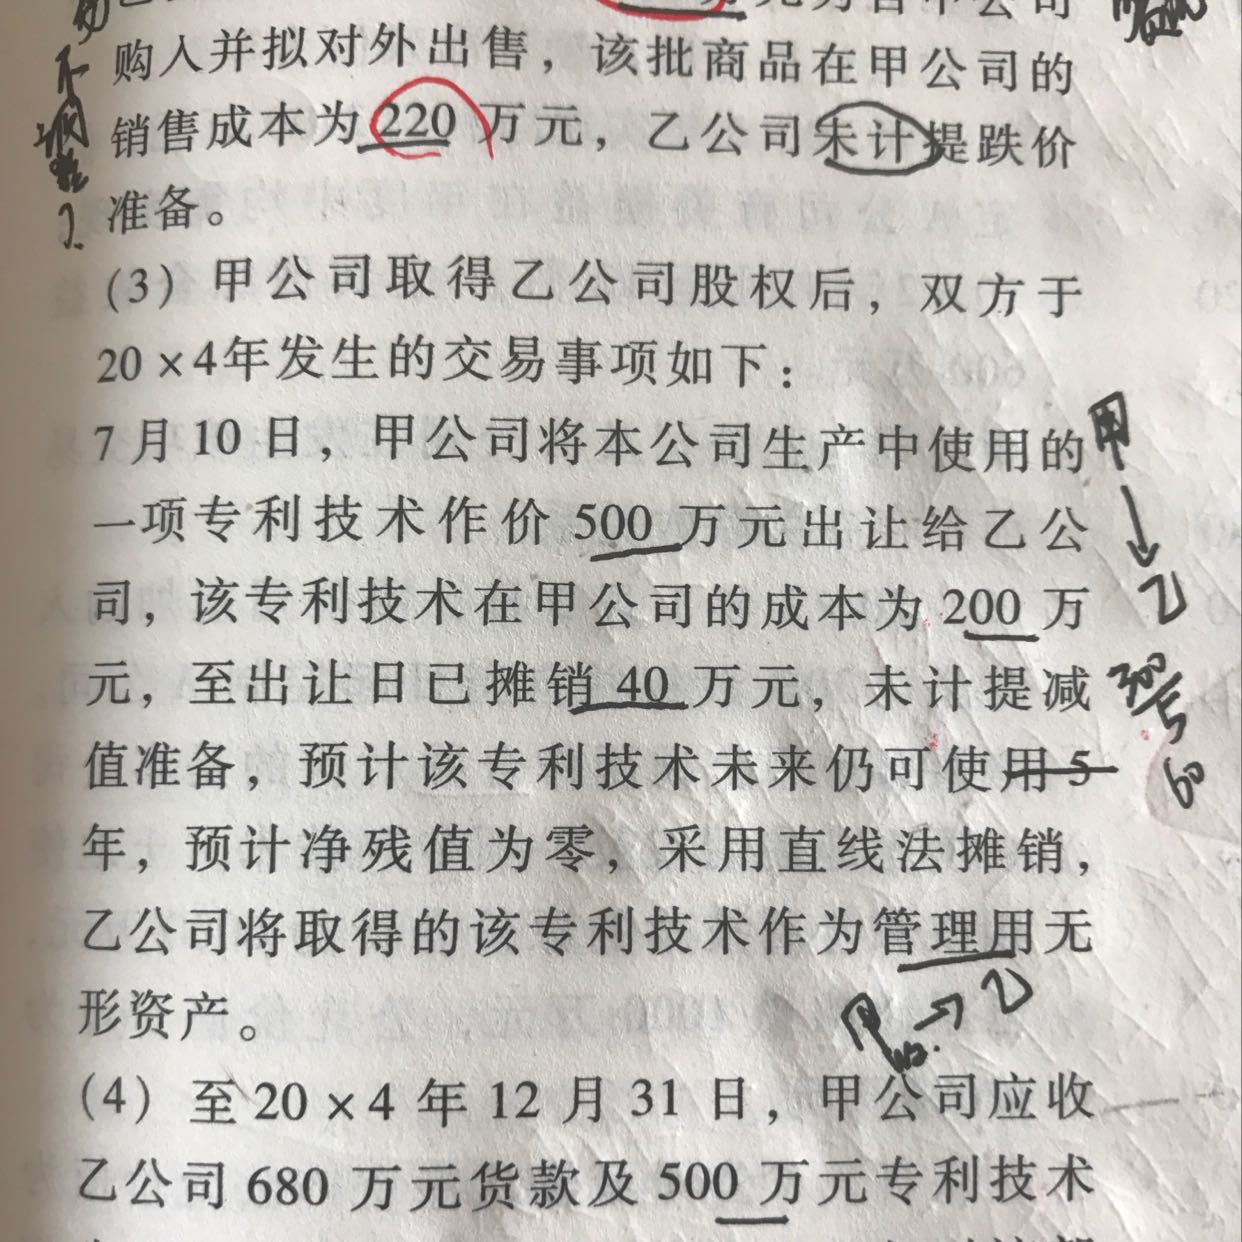 购入并拟对外出售，该批商品在甲公司的
销售成本为 220 万元，乙公司未计提跌价
准备。
(3) 甲公司取得乙公司股权后，双方于
20×4年发生的交易事项如下：
7月10日，甲公司将本公司生产中使用的
一项专利技术作价 500 万元出让给乙公
司，该专利技术在甲公司的成本为 200 万
元，至出让日已摊销 40 万元，未计提减
值准备，预计该专利技术未来仍可使用 5
年，预计净残值为零，采用直线法摊销，
乙公司将取得的该专利技术作为管理用无
形资产。
(4) 至20×4年12月31日，甲公司应收
乙公司 680 万元货款及 500 万元专利技术
甲
→
乙
300
5
60
→乙